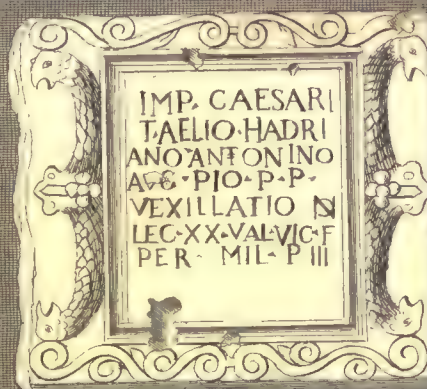 IMP. CAESARI
T.AELIO·HADRI
ANO·ANTONINO
AVG·PIO·P·P·
VEXILLATIO
LEG·XX·VAL·VIC·F
PER· MIL·P III